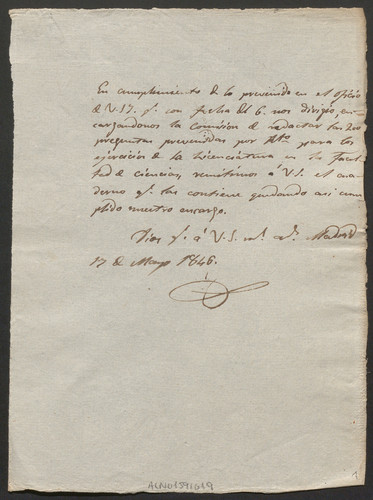 En cumplimiento de lo prevenido en el oficio
de V.S. q.e con fecha del 6. nos dirigió, en-
cargandonos la Comision de redactar las 200
preguntas prevenidas por para los
ejercicios de la Licenciatura en la facul-
tad de ciencias, remitimos á V.S. el cua-
derno q.e las contiene quedando asi cum-
plido nuestro encargo.
Dios g.e á V.S. m.s a.s Madrid
17 de Mayo 1846.
ACN01591019
1